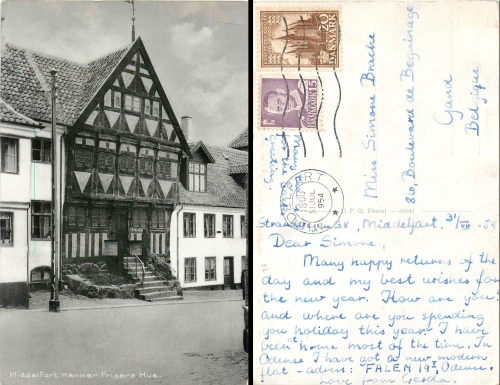 Middelfart. Henner Frisers Hus.
20
DANMARK
DANMARK 15
1954
Miss Simone Brache
86, Boulevard de Béguinage
Gand
Belgique
Middelfart, 31/VII - 54
Dear Simone,
Many happy returns of the
day and my best wishes for
the new year. How are you
and where are you spending
you holiday this year. I have
been at home most of the time. In
Odense I have got a new modern
flat - adress: "FALEN 19I, Odense,
love from Gerda.